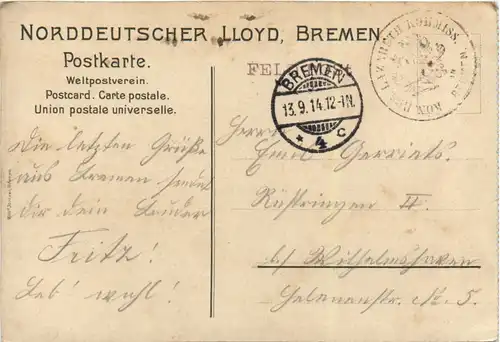 NORDDEUTSCHER LLOYD, BREMEN
Postkarte.
Weltpostverein.
Postcard. Carte postale.
Union postale universelle.
FELDPOST
BREMEN
13.9.14.12-1N.
* 4 c
Die letzten Grüße
aus Bremen sendet
dir dein Bruder
Fritz!
Leb' wohl!
Herrn
Emil Gerriets.
Rüstringen II.
b/ Wilhelmshaven
No. 5.